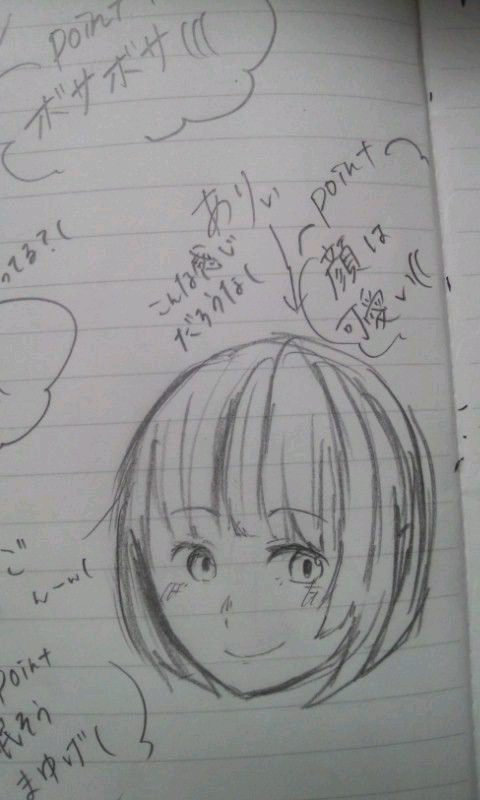 point
ボサボサ(((
ありぃ
こんな感じ
だろうな(
point
顔は
可愛い((
てる?(
ご
んーw(
point
眠そう
まゆげ(